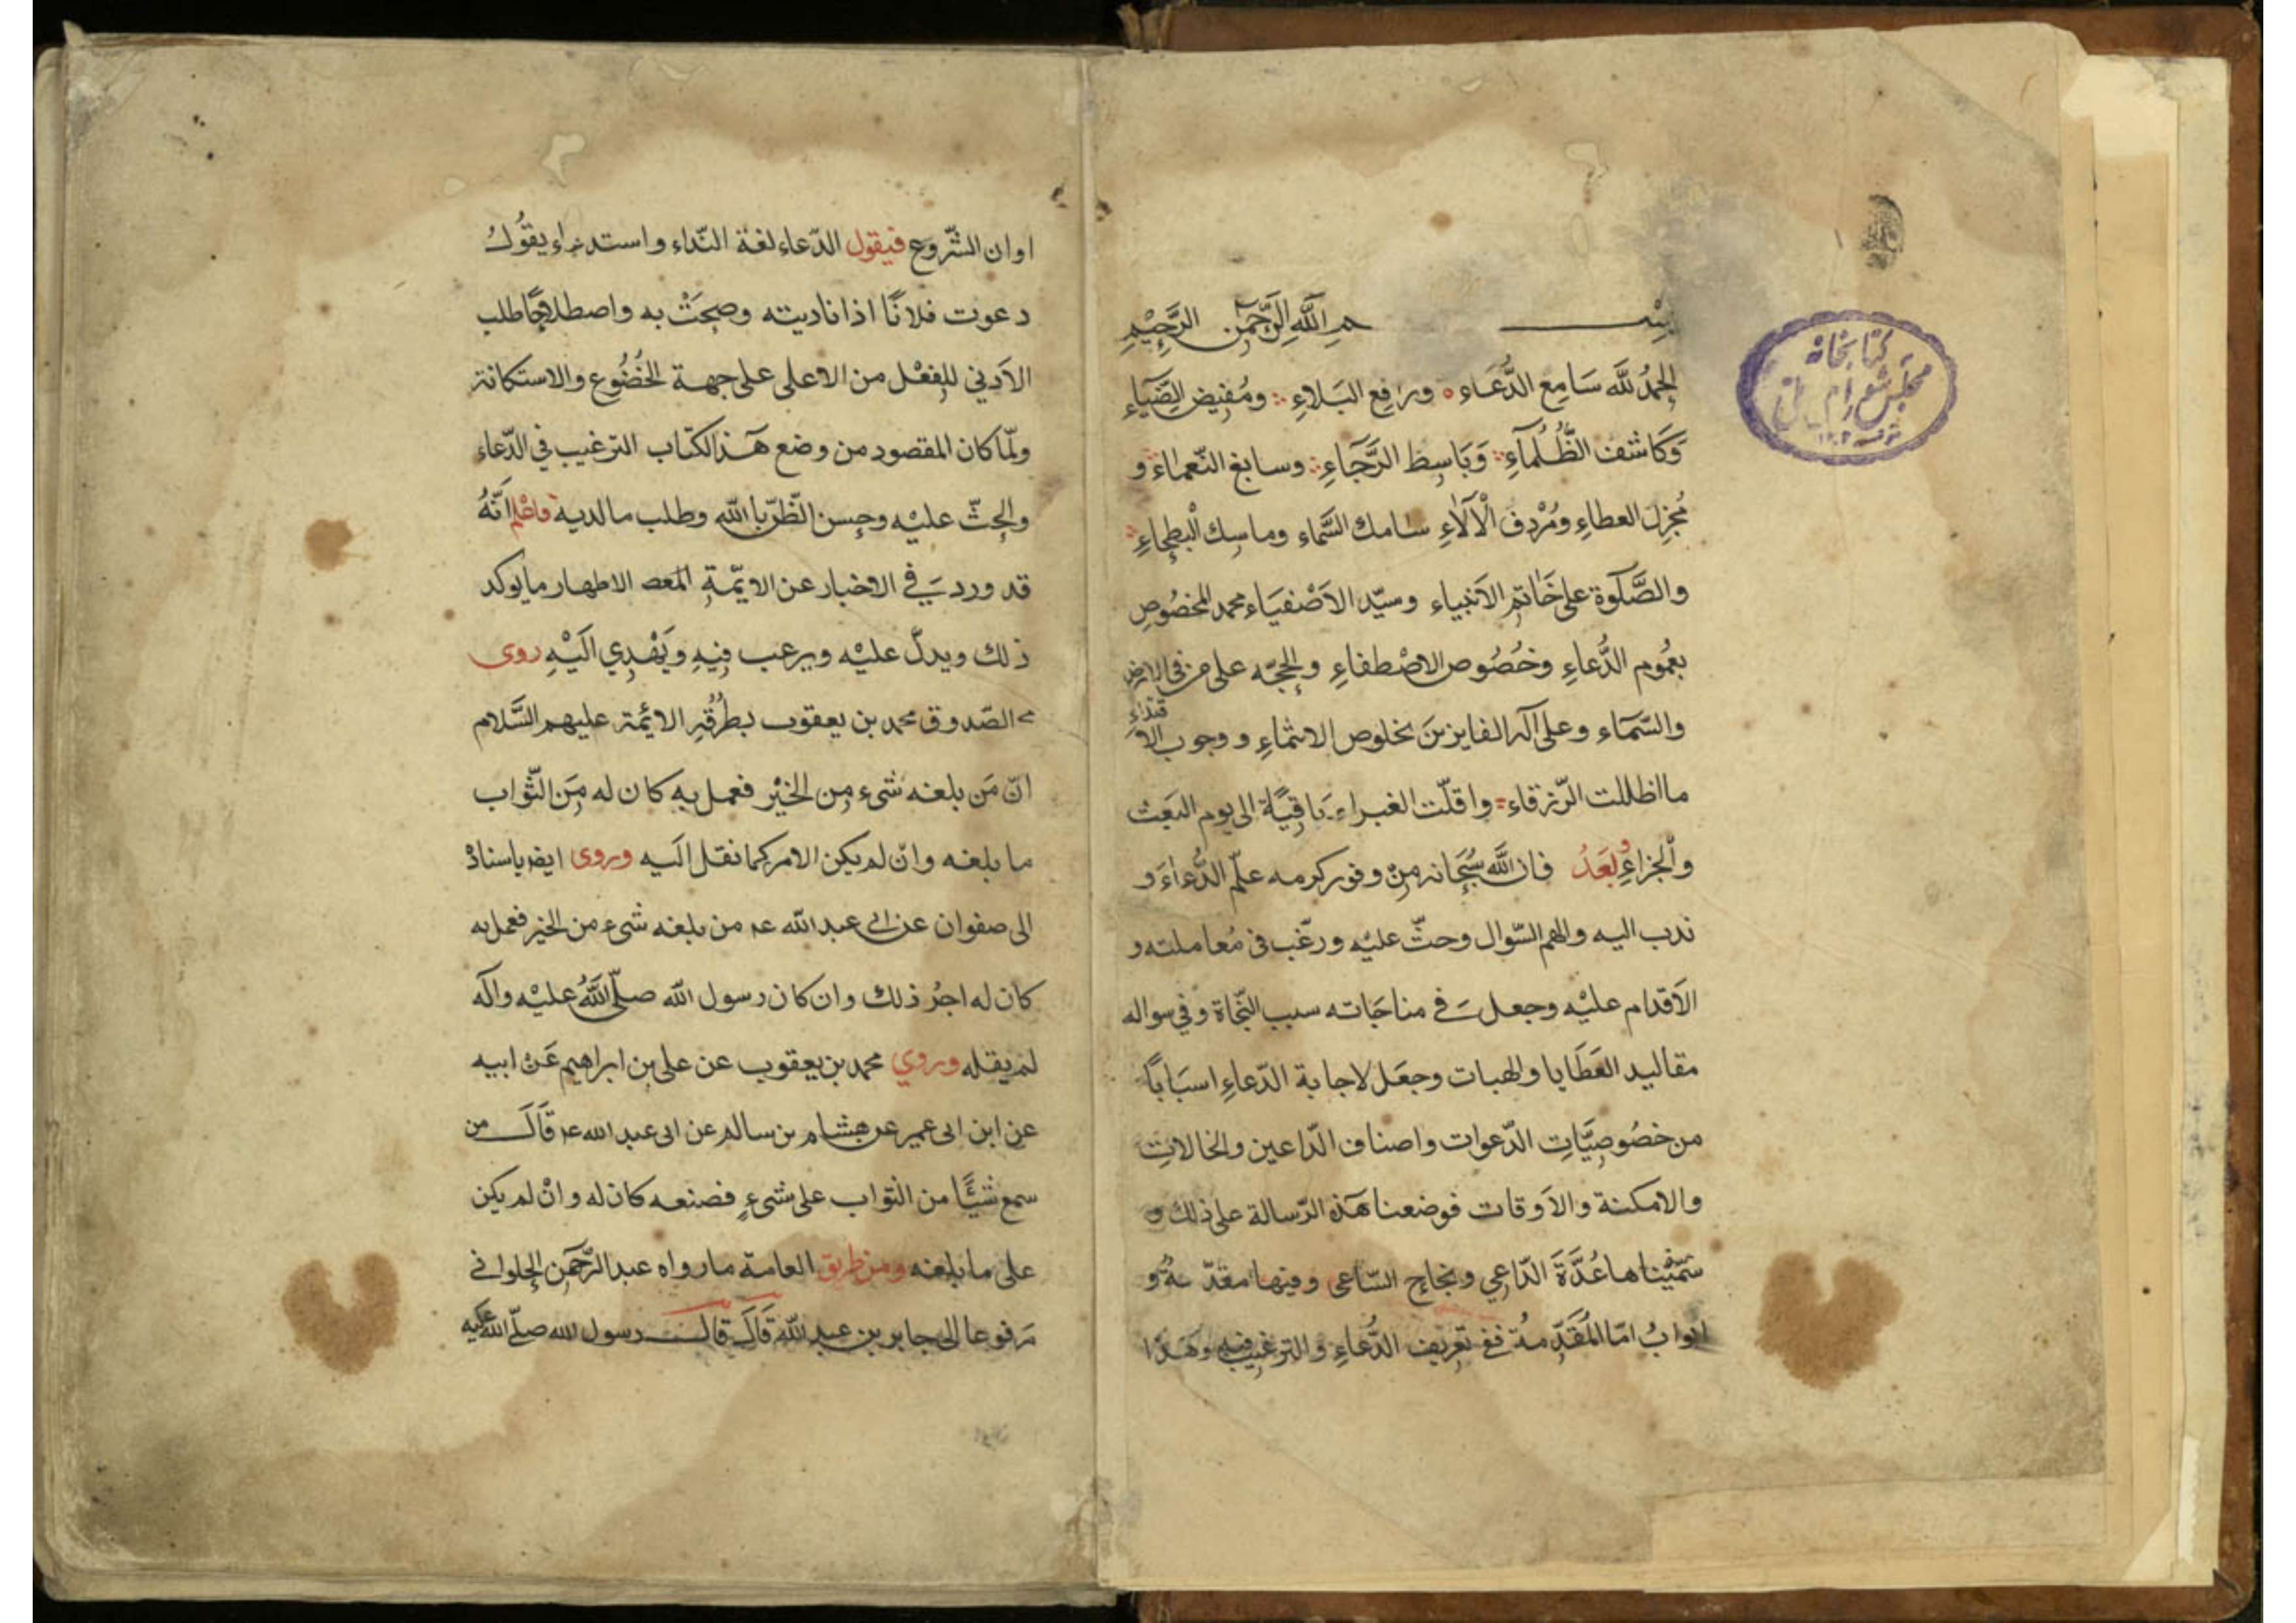 بسم الله الرحمن الرحيم
الحمدُ للَّه سَامِع الدُّعَاء ورافِع البَلاءِ ومُفيض الضِّيَاءِ
وَكَاشف الظُّلُمآءِ وَبَاسِط الرَّجَاءِ وسابغ النّعماءَ و
مُجزِل العطاءِ ومُرْدِف الْآلَاءِ سامك السَّماء وماسِك الْبطحاءِ
والصَّلَوة على خَاتم الاَنبياء وسيّد الاَصْفيَاء محمد المخصُوصِ
بعُموم الدُّعاءِ وخُصُوص الاصْطفاءِ والحجّه على من في الارض
والسّمَاء وعلى آله الفايزينَ بخلوص الانتماءِ ووجوب الاقتداءِ
ما اظللت الزرقاء واقلّت الغبراء بَاقِيَةً الى يوم البَعث
والجزاءِ وبَعَدُ فان اللَّه سُبحَانه مِنْ وفور كرمه علّم الدُّعاءَ و
ندب اليه والهم السّوال وحثّ عليْه ورغّب فى مُعاملته و
الاَقدام عليْه وجعل في مناجَاته سبب النّجَاة وفي سواله
مقاليد العَطَايا والهبات وجعَل لاجابة الدّعاءِ اسبَابًا
من خصُوصِيَّاتِ الدّعوات واصناف الدّاعين والحالاتِ
والامكنة والاَوقات فوضعنا هَذه الرّسالة على ذلك و
سَمّيْناها عُدَّةَ الدّاعي ونجاح السّاعى وفيها مقدّمةٌ و
ابوابُ امّا المُقَدّمةُ ففي تعريف الدُّعاءِ والترغيب فيه وهَذا
اوان الشّرُوع فيقول الدّعاء لغة النّداء واستدعاء يقُول
دعوت فلانًا اذا ناديته وصِحتُ به واصطلاحًا طلب
الاَدني للِفعْل من الاعلى على جهة الخُضُوع والاستكانة
ولمّا كان المقصود من وضع هَذا الكتاب الترغيب في الدّعاء
والحثّ عليْه وحسن الظّنّ بالله وطلب ما لديه فاعْلم اَنّهُ
قد ورد في الاخبار عن الايّمةِ المعص الاطهار ما يوكد
ذلك ويدلّ عليْه ويرغب فيهِ ويَهْدِي الَيْهِ روى
الصّدوق محمد بن يعقوب بطُرُقِهِ الائمّة عليهم السَّلام
انّ مَن بلغه شىء مِن الخيْر فعمل به كان له مِنَ الثّواب
ما بلغه وانْ لم يكن الامر كما نقل الَيه وروى ايضا باسنادْ
الى صفوان عن ابي عبد الله عه من بلغه شىء من الخير فعمل به
كان له اجرُ ذلك وان كان رسول الله صلّى اللَّهُ عليْه واَله
لم يقله وروي محمد بن يعقوب عن على بن ابراهيم عَنْ ابيه
عن ابن ابى عمير عن هشام بن سالم عن ابى عبد الله عه قَالَ من
سمع شيْئًا من الثواب على شىءٍ فصنعه كان له وانْ لم يكن
على ما بلغه ومن طريق العامة ما رواه عبد الرّحمَن الحلوانى
مَرفوعا الى جابر بن عبد اللّه قَالَ قال رسول الله صلّى الله عليه
كتابخانه
مجلس شوراى ملى